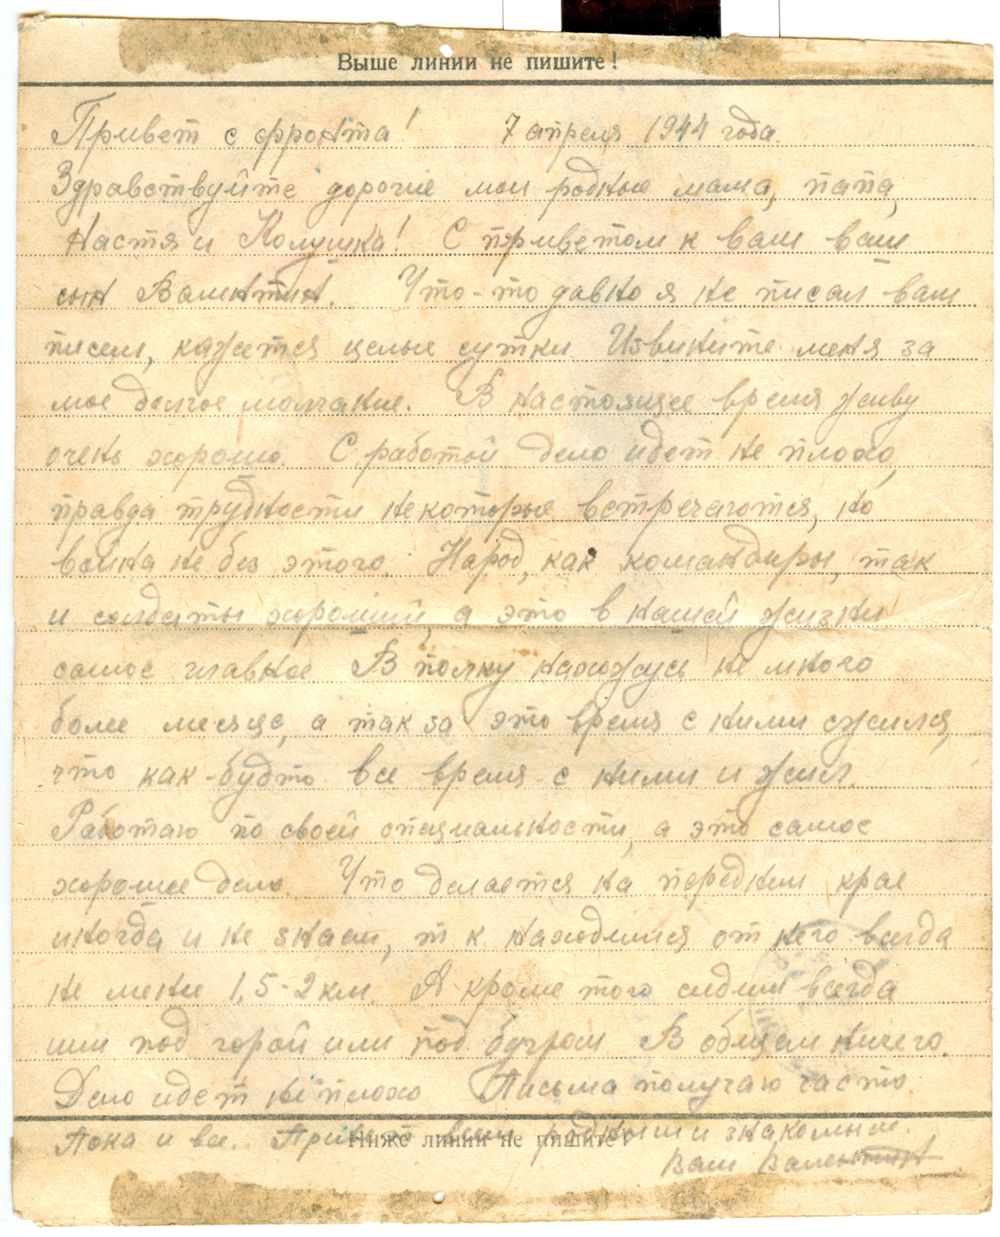 Выше линии не пишите!
Привет с фронта! 7 апреля 1944 года.
Здравствуйте дорогие мои родные мама, папа,
Настя и Колушка! С приветом к вам ваш
сын Валентин. Что-то давно я не писал вам
писем, кажется целые сутки Извините меня за
мое долгое молчание. В настоящее время живу
очень хорошо. С работой дело идет не плохо,
правда трудности некоторые встречаются, но
война не без этого. Народ, как командиры, так
и солдаты хороший, а это в нашей жизни
самое главное В полку нахожусь не много
более месяца, а так за это время с ними сжился,
что как-будто все время с ними и жил.
Работаю по своей специальности, а это самое
хорошее дело. Что делается на переднем крае
иногда и не знаем, т к находимся от него всегда
не мене 1,5-2 км. Я кроме того сидим всегда
или под горой или под бугром В общем ничего.
Дело идет не плохо Письма получаю часто.
Ниже линии не пишите!
Пока и все. Привет всем родным и знакомым.
Ваш Валентин